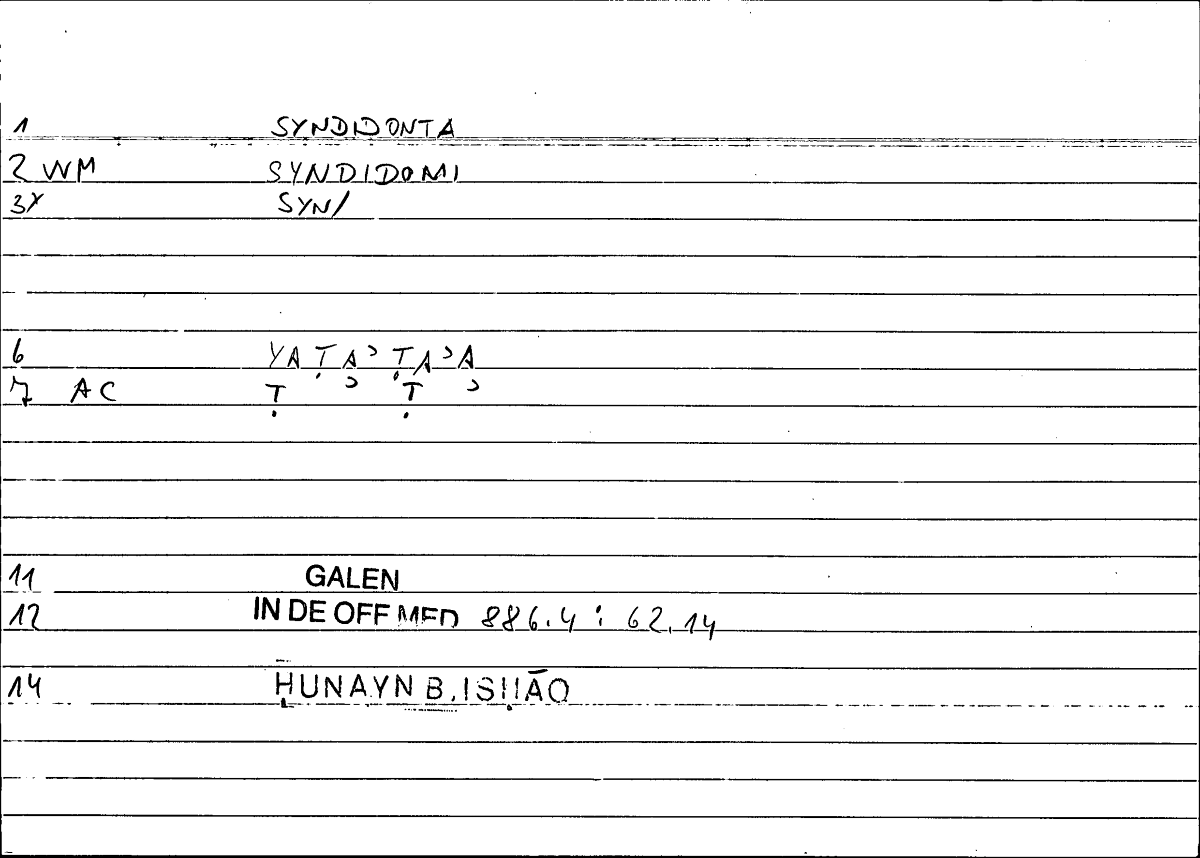 1 SYNDIDONTA
2 WM SYNDIDOMI
3X SYN/
6 YAṬAʾṬAʾA
7 AC Ṭ ʾ Ṭ ʾ
11 GALEN
12 IN DE OFF MED 886.4 : 62.14
14 ḤUNAYN B. ISḤĀQ